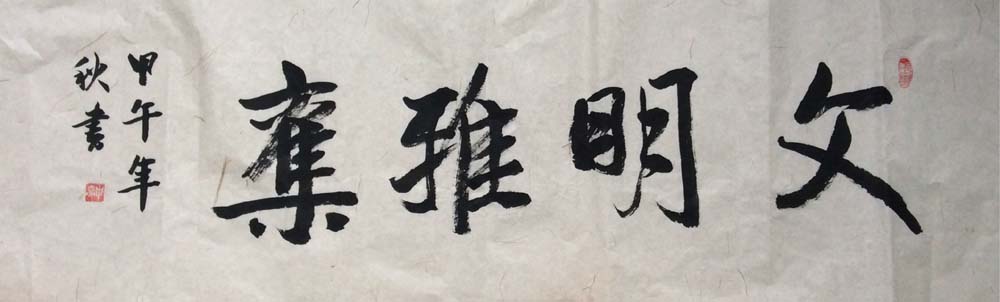 文明雅集
甲午年
秋書